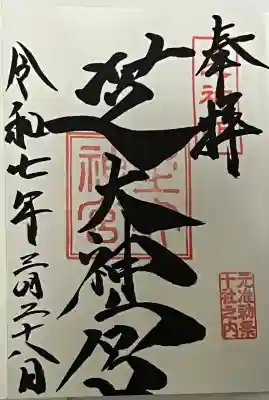 奉拝
芝大神宮
令和七年二月二十八日
元准勅祭
十社之内